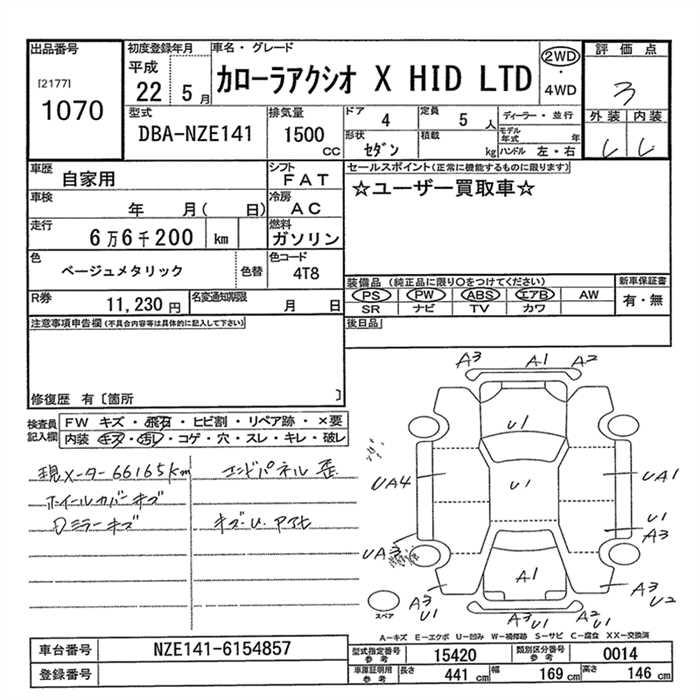 出品番号 初度登録年月 車名・グレード 評価点
[2177] 1070 平成 22 5月 カローラアクシオ X HID LTD 2WD・4WD 3
外装 内装
型式 DBA-NZE141 排気量 1500 CC ドア 4 定員 5 人 ディーラー・並行
形状 セダン 積載 kg モデル年式 年 ハンドル 左・右
車歴 自家用 シフト FAT セールスポイント(正常に機能するものに限ります)
☆ユーザー買取車☆
車検 年 月( 日) 冷房 AC
走行 6万6千200 km 燃料 ガソリン
色 ベージュメタリック 色替 色コード 4T8
装備品 (純正品に限り○をつけてください) 新車保証書
PS PW ABS エアB AW 有・無
SR ナビ TV カワ
R券 11,230円 名変通知期限 月 日
注意事項申告欄(不具合内容等は具体的に記入して下さい) 後日品
修復歴 有〔箇所 〕
検査員記入欄 FW キズ・飛石・ヒビ割・リペア跡・×要
内装 キズ・汚レ・コゲ・穴・スレ・キレ・破レ
現メーター66165km エンドパネル歪
ホイールカバーキズ
Dミラーキズ キズ・U.アサヒ
A3 A1 A2
U1
UA4 U1 UA1
U1 A3
UA3
A1
A3 U1 A3 U2
スペア A3 U1 A2 U1
A-キズ E-エクボ U-凹み W-補修跡 S-サビ C-腐食 XX-交換済
車台番号 NZE141-6154857 型式指定番号 参考 15420 類別区分番号 参考 0014
登録番号 車庫証明用 参考 長さ 441 cm 幅 169 cm 高さ 146 cm